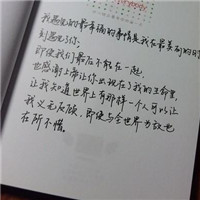 我遇见的最幸福的事情是我在最美好的时
刻遇见了你,
即使我们最后不能在一起.
也感谢上帝让你出现在了我的生命里,
让我知道世界上有那样一个人可以让
我义无反顾,即使与全世界为敌也
在所不惜.